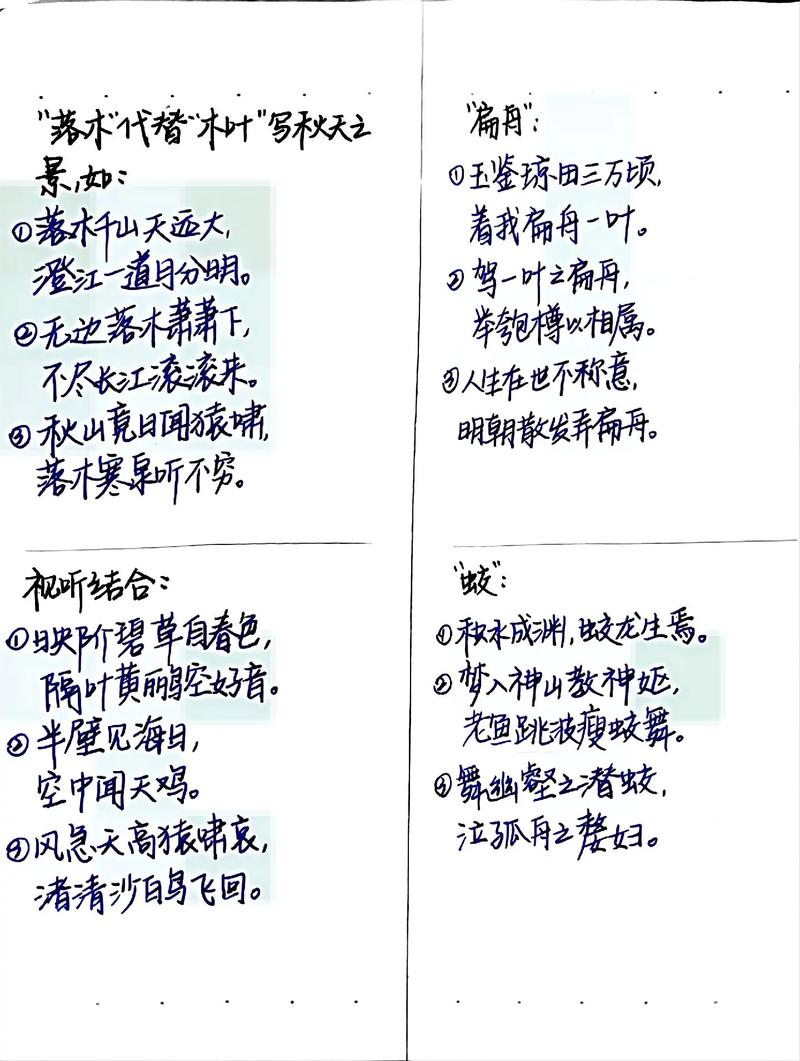 "落木"代替"木叶"写秋天之
景,如:
①落木千山天远大,
澄江一道月分明。
②无边落木萧萧下,
不尽长江滚滚来。
③秋山竟日闻猿啸,
落木寒泉听不穷。
视听结合:
①映阶碧草自春色,
隔叶黄鹂空好音。
②半壁见海日,
空中闻天鸡。
③风急天高猿啸哀,
渚清沙白鸟飞回。
"扁舟":
①玉鉴琼田三万顷,
着我扁舟一叶。
②驾一叶之扁舟,
举匏樽以相属。
③人生在世不称意,
明朝散发弄扁舟。
"蛟":
①积水成渊,蛟龙生焉。
②梦入神山教神妪,
老鱼跳波瘦蛟舞。
③舞幽壑之潜蛟,
泣孤舟之嫠妇。